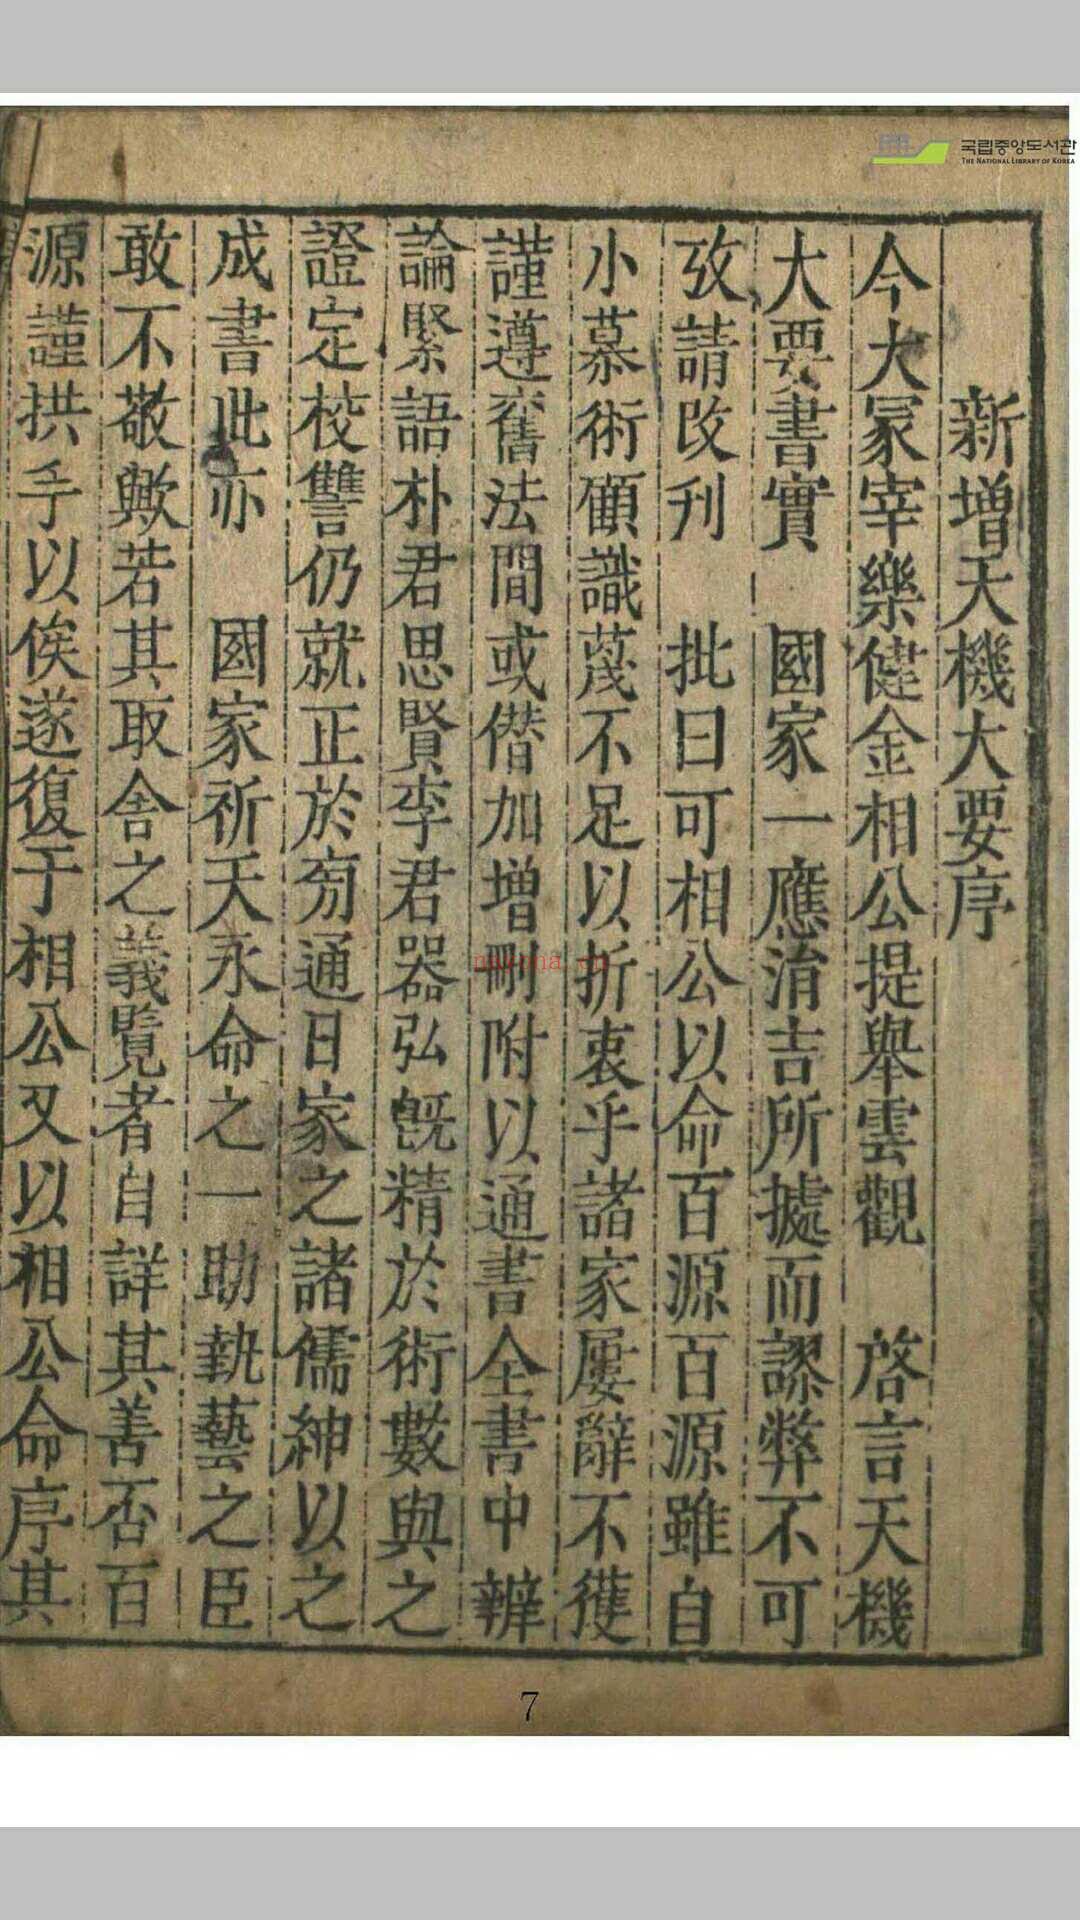 국립중앙도서관
THE NATIONAL LIBRARY OF KOREA
新增天機大要序
今大冢宰樂健金相公提舉雲觀 啓言天機
大要書實 國家一應涓吉所據而謬弊不可
攷請改刋 批曰可相公以命百源百源雖自
小慕術顧識蔑不足以折衷乎諸家屢辭不獲
謹遵舊法間或僣加增刪附以通書全書中辨
論緊語朴君思賢李君器弘旣精於術數與之
證定校讐仍就正於刱通日家之諸儒紳以之
成書此亦 國家祈天永命之一助執藝之臣
敢不敬歟若其取舍之義覽者自詳其善否百
源謹拱手以俟遂復于相公又以相公命序其
7